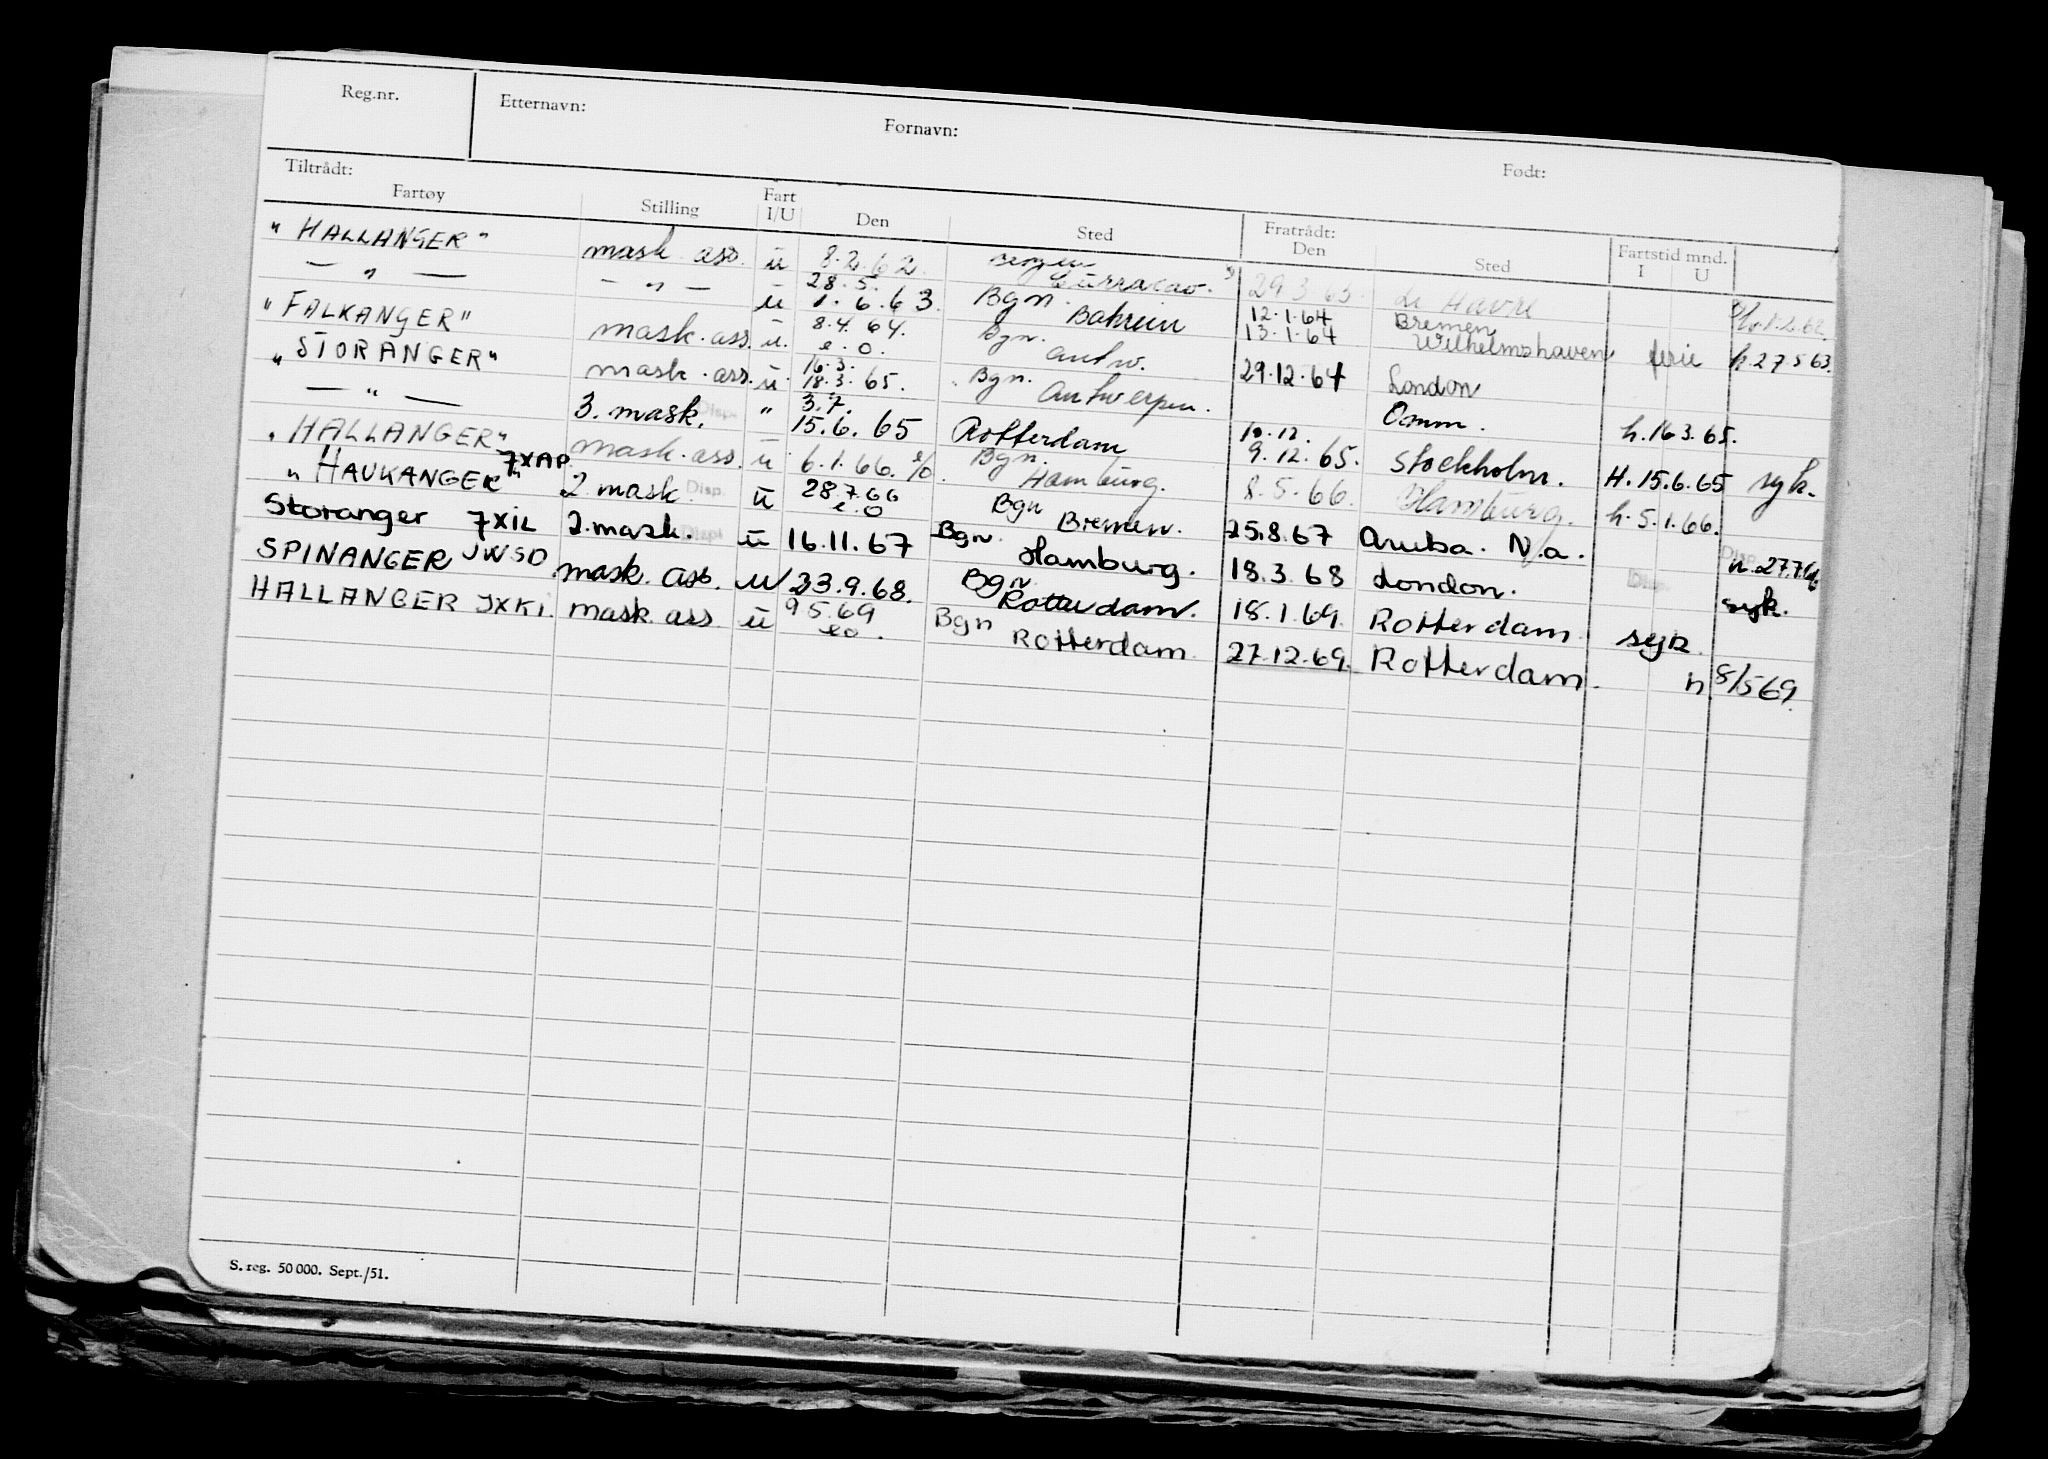 Reg.nr. Etternavn: Fornavn: Født:
Tiltrådt: Fratrådt: Fartstid mnd.
Fartøy Stilling Fart I/U Den Sted Den Sted I U
"HALLANGER" mask. ass. u 8.2.62. Bergen Curracao. 29.3.63. Le Havre 1.2.62.
— " — — " — u 28.5. 1.6.63. Bgn. Bahrein 12.1.64 13.1.64 Bremen Wilhelmshaven ferie h.27.5.63.
"FALKANGER" mask. ass. u. 8.4.64. e.o. Bgn. Antw. 29.12.64 London
"STORANGER" mask. ass. u. 16.3. 18.3.65. Bgn. Antwerpen. Omm. h.16.3.65.
— " — 3. mask. Disp. " 3.7. 15.6.65 Rotterdam 10.12. 9.12.65. Stockholm. H.15.6.65 syk.
"HALLANGER" mask. ass. u 6.1.66. e/o. Bgn. Hamburg. 8.5.66. Hamburg. h.5.1.66.
"HAUKANGER" 7XAP 2. mask. Disp. u 28.7.66 e.o Bgn Bremen. 25.8.67 Aruba. N.a. Disp. h.27.7.66
Storanger 7XIL 2. mask. Disp. u 16.11.67 Bgn. Hamburg. 18.3.68 London. Disp. syk.
SPINANGER JWSO. mask. ass. u 23.9.68. Bgn. Rotterdam. 18.1.69. Rotterdam syk.
HALLANGER JXKI. mask. ass u 9.5.69 eo. Bgn Rotterdam 27.12.69. Rotterdam. h. 8/5 69.
S. reg. 50 000. Sept./51.